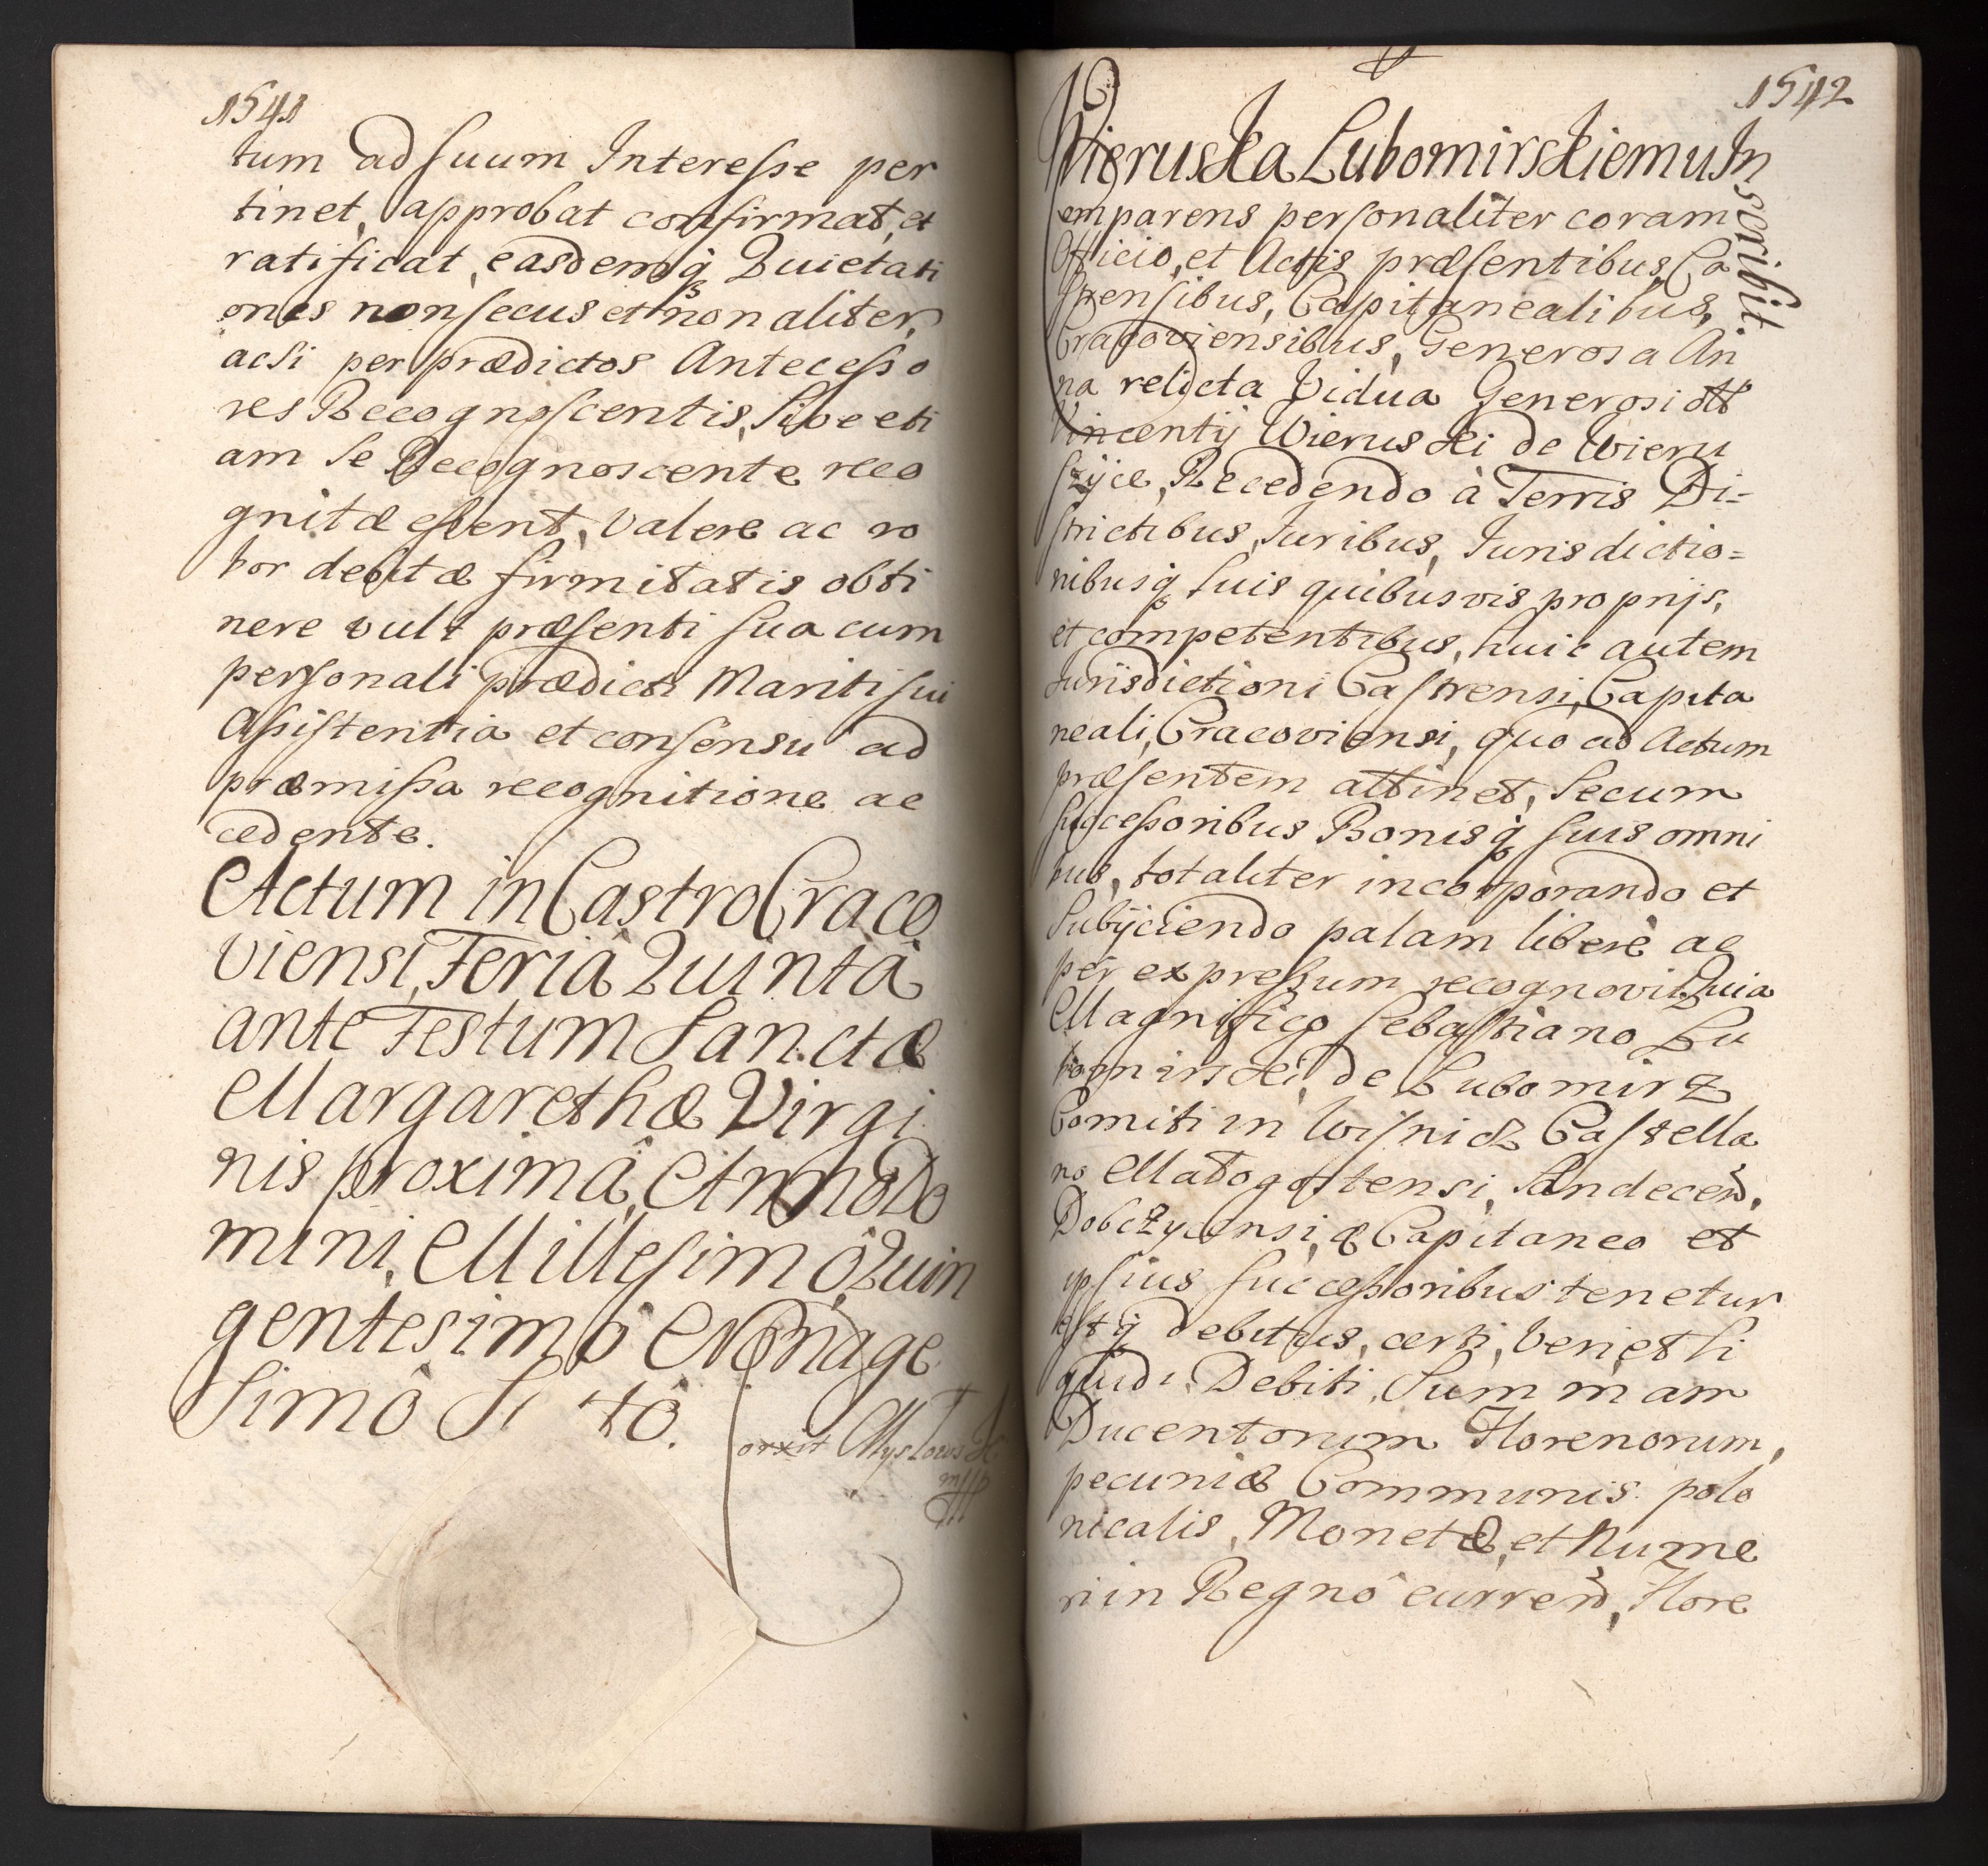 1541
tum ad suum Interesse per
tinet, approbat confirmat, et
ratificat, easdemq, Quietati
ones non secus et non aliter,
acsi per prædictos Antecesso
res Recognoscentis, sive eti
am se Recognoscente reco
gnitæ essent, valere ac ro
bor debitæ firmitatis obti
nere vult præsenti sua cum
personali prædicti Mariti sui
Assistentia et consensu ad
præmissa recognitione ac
cedente.
Actum in Castro Craco
viensi, Feriâ Quintâ
ante Festum Sanctæ
Margarethæ Virgi
nis proximâ, Anno Do
mini, Millesimô, Quin
gentesimô Nonage
simô
mpp
1542
Wieruska Lubomirskiemu In
scribit.
Comparens personaliter coram
Officio, et Actis præsentibus, Ca
strensibus, Capitanealibus,
Cracoviensibus, Generosa An
na relicta Vidua Generosi olt
Vincentij Wieruski de Wieru
szÿce, Recedendo à Terris Di=
strictibus, Juribus, Jurisdictio=
nibusq, suis quibusvis proprijs,
et competentibus, huic autem
Jurisdictioni Castrensi, Capita
neali, Cracoviensi, quo ad Actum
præsentem attinet, secum
successoribus Bonisq, suis omni
bus, totaliter incorporando et
subÿciendo palam liberè ac
per expressum recognovit, Quia
Magnifico Sebastiano Lu
bomirski, de Lubomirz
Comiti in Wisnicz Castella
no Małogostensi, Sandecen,
Dobczycensi, & Capitaneo et
ipsius successoribus tenetur
estq, debitrus, certi, veri, et li
quidi, Debiti, Summam
Ducentorum Florenorum,
pecuniæ Communis polo
nicalis, Monetæ, et Nume
ri in Regnô curren, Flore